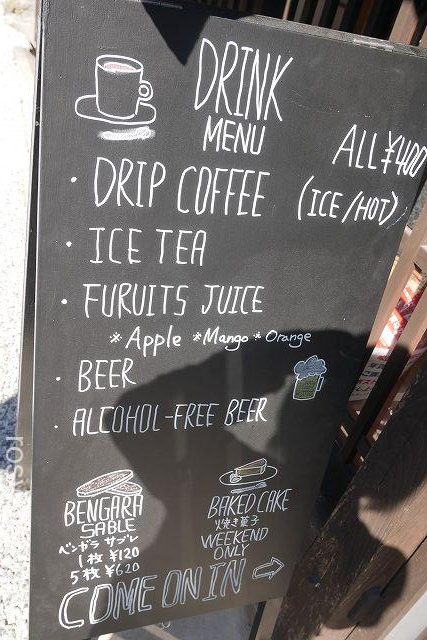 DRINK
MENU
ALL ¥400
・DRIP COFFEE (ICE/HOT)
・ICE TEA
・FURUITS JUICE
※Apple ※Mango ※Orange
・BEER
・ALCOHOL-FREE BEER
BENGARA
SABLE
ベンガラ サブレ
1枚 ¥120
5枚 ¥620
BAKED CAKE
焼き菓子
WEEKEND
ONLY
COME ON IN
rosi